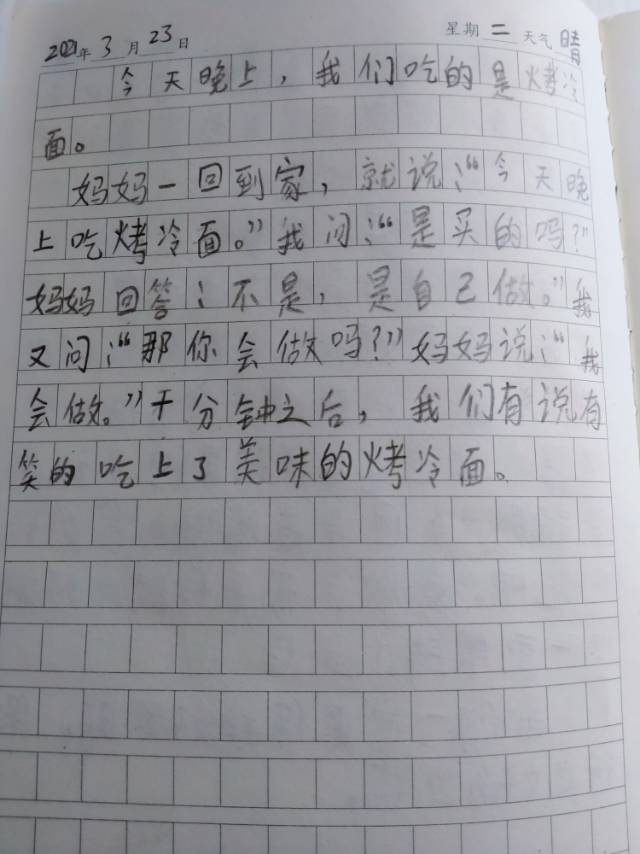 2021年3月23日 星期二 天气晴
今天晚上，我们吃的是烤冷
面。
妈妈一回到家，就说：“今天晚
上吃烤冷面。”我问：“是买的吗？”
妈妈回答：不是，是自己做。”我
又问：“那你会做吗？”妈妈说：“我
会做。”十分钟之后，我们有说有
笑的吃上了美味的烤冷面。